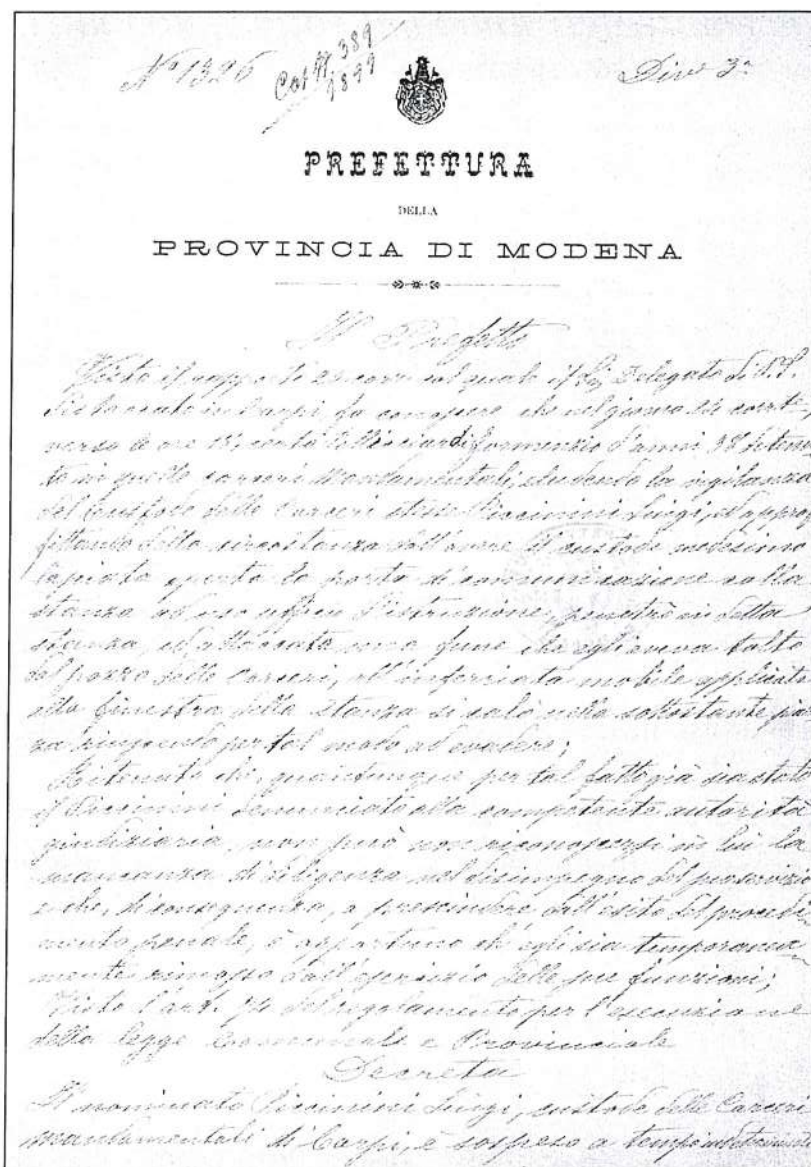 N° 1326
Cat 389
1899
Div 3ª
PREFETTURA
DELLA
PROVINCIA DI MODENA
Il Prefetto
Visto il rapporto 22 corr. col quale il Sig. Delegato di P.S.
in Carpi fa conoscere che nel giorno corrte
verso le ore 15, certo Formenzio d'anni 38 detenu
to in quelle carceri Mandamentali, eludendo la vigilanza
del Custode delle Carceri stesse Piccinini Luigi, ed appro
fittando della circostanza dell'avere il custode medesimo
lasciata aperta la porta di comunicazione colla
stanza ad uso ufficio d'istruzione, penetrò in detta
stanza, ed attaccata una fune che egli aveva tolto
dal pozzo delle Carceri, all'inferriata mobile applicata
alla finestra della stanza si calò nella sottostante piaz
za riuscendo per tal modo ad evadere;
Ritenuto che, quantunque per tal fatto già sia stato
il Piccinini denunciato alla competente autorità
giudiziaria, non può non riconoscersi in lui la
mancanza di diligenza nel disimpegno del suo servizio
e che, di conseguenza, a prescindere dall'esito del procedi
mento penale, è opportuno ch'egli sia temporanea
mente rimosso dall'esercizio delle sue funzioni;
Visto l'art. del regolamento per l'esecuzione
della legge Comunale e Provinciale
Decreta
Il nominato Piccinini Luigi, custode delle Carceri
mandamentali di Carpi, è sospeso a tempo indeterminato